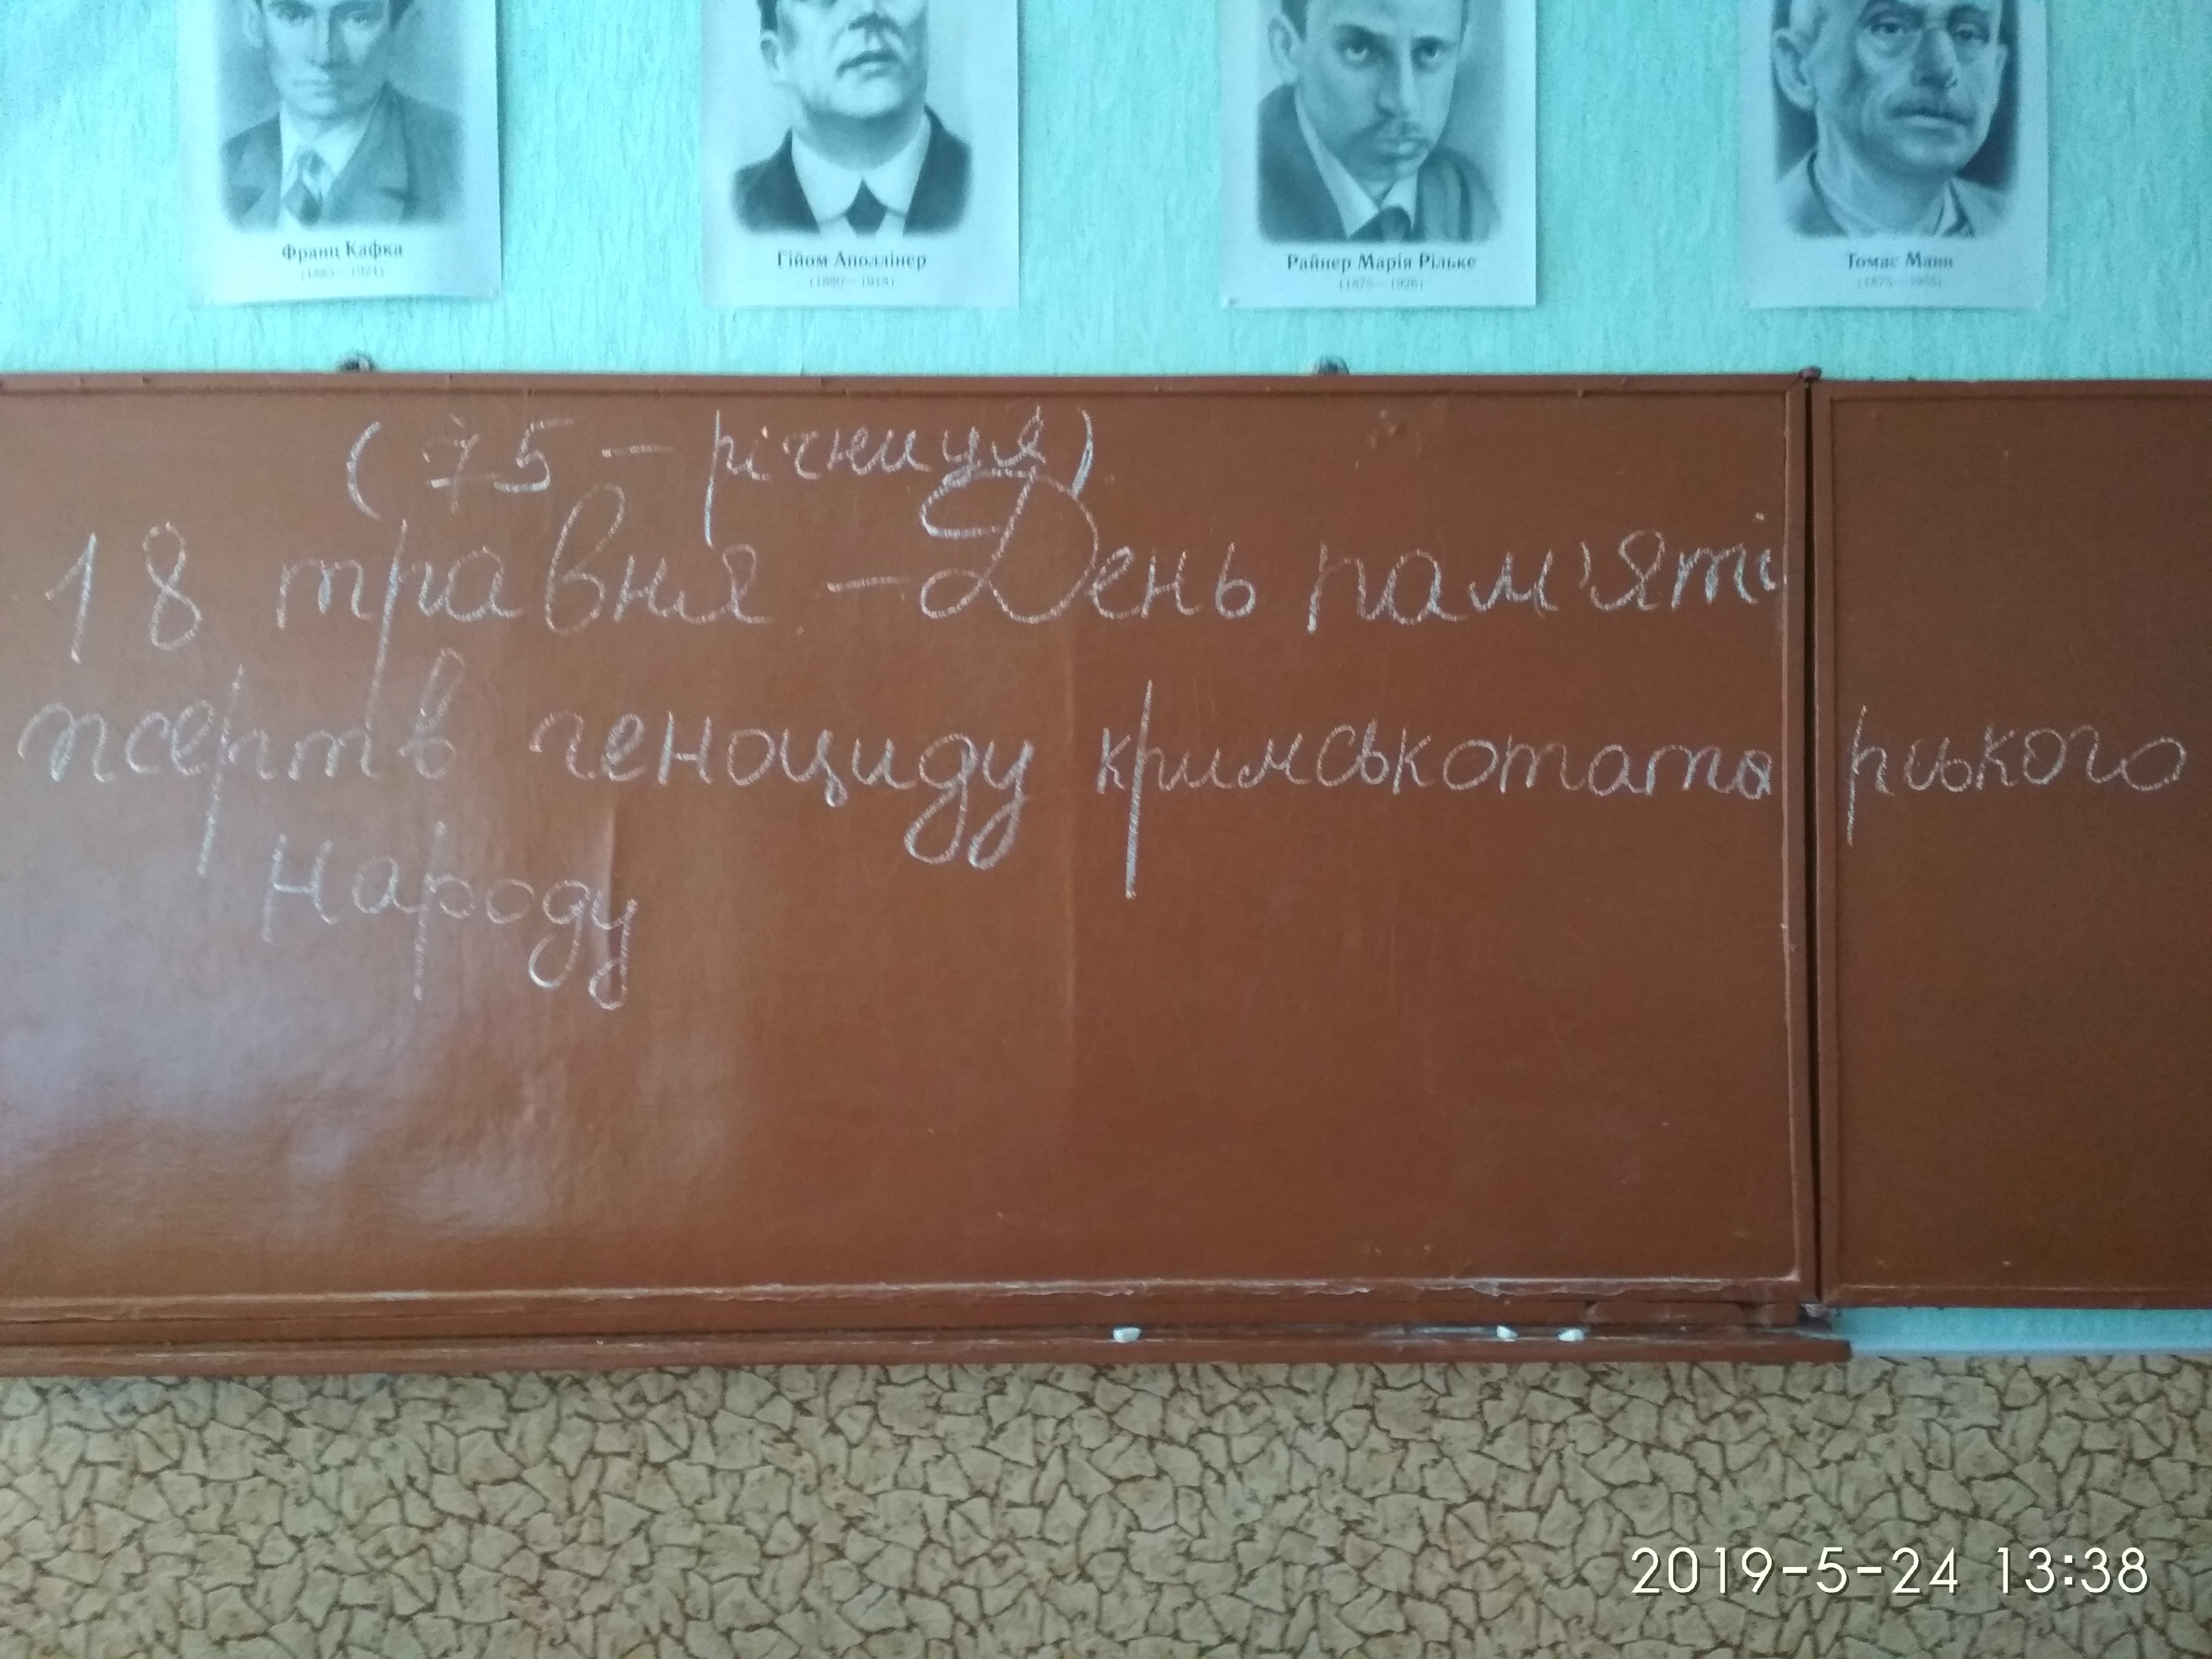 Франц Кафка
(1883—1924)
Гійом Аполлінер
(1880—1918)
Райнер Марія Рільке
(1875—1926)
Томас Манн
(1875—1955)
(75 – річниця)
18 травня – День пам'яті
жертв геноциду кримськотатарського
народу
2019-5-24 13:38